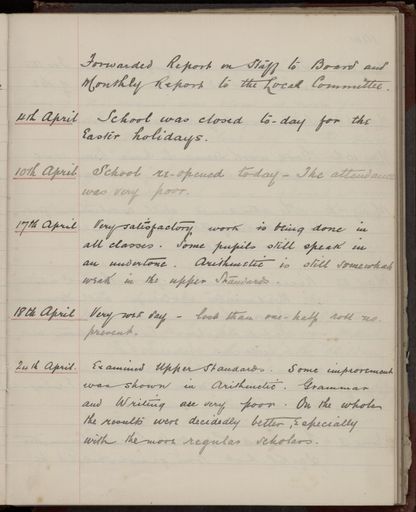 Forwarded Report on Staff to Board and
Monthly Report to the Local Committee.
4th April School was closed to-day for the
Easter holidays.
10th April School re-opened today - The attendance
was very poor.
17th April Very satisfactory work is being done in
all classes. Some pupils still speak in
an undertone. Arithmetic is still somewhat
weak in the upper Standards.
18th April Very wet day - less than one-half roll no.
present.
24th April. Examined Upper Standards. Some improvement
was shown in Arithmetic. Grammar
and Writing are very poor. On the whole
the results were decidedly better, especially
with the more regular scholars.